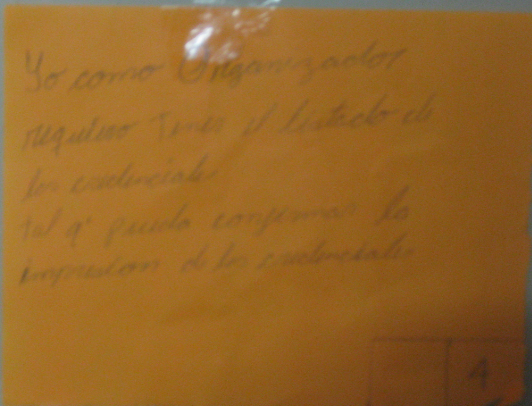 Yo como Organizador
requiero Tener el listado de
las credenciales
tal q' pueda confirmar la
impresion de las credenciales
4